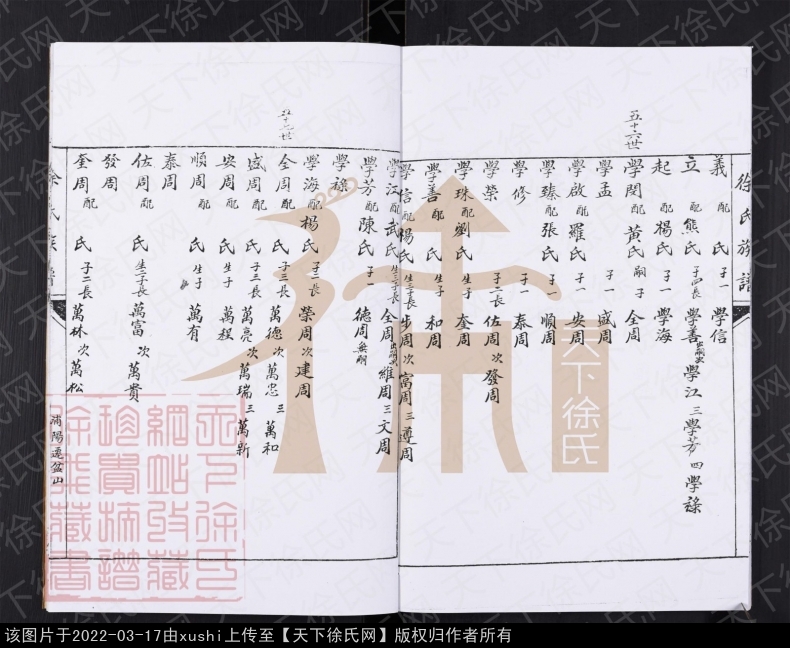 徐氏族譜
五十六世
義 配 氏 子一 學信
立 配熊氏 子四長 學善 出嗣 次 學江 三 學芳 四 學祿
起 配楊氏 子一 學海
學閔 配黃氏 嗣子 全周
學孟 子一 盛周
學啟 配羅氏 子一 安周
學臻 配張氏 子一 順周
學修 子一 泰周
學榮 子二長 佐周 次 發周
學珠 配劉氏 生子 奎周
學善 配 氏 生子 和周
學信 配楊氏 生三子長 步周 次 富周 三 遵周
學江 配武氏 生三子長 全周 出嗣 次 維周 三 文周
學芳 配陳氏 子一 德周 無嗣
學旗
五十七世
學海 配楊氏 子二長 榮周 次 建周
全周 配 氏 子三長 萬德 次 萬忠 三 萬和
盛周 配 氏 子三長 萬亮 次 萬瑞 三 萬新
安周 配 氏 生子 萬程
順周 配 氏 生子 萬有
泰周
佐周 配 氏 生二子長 萬富 次 萬貴
發周
奎周 配 氏 子二長 萬林 次 萬松
徐氏族譜
浦陽
盆山
天下徐氏
天下徐氏網站收藏珍貴摛譜徐氏藏書
天下徐氏网
该图片于2022-03-17由xushi上传至【天下徐氏网】版权归作者所有